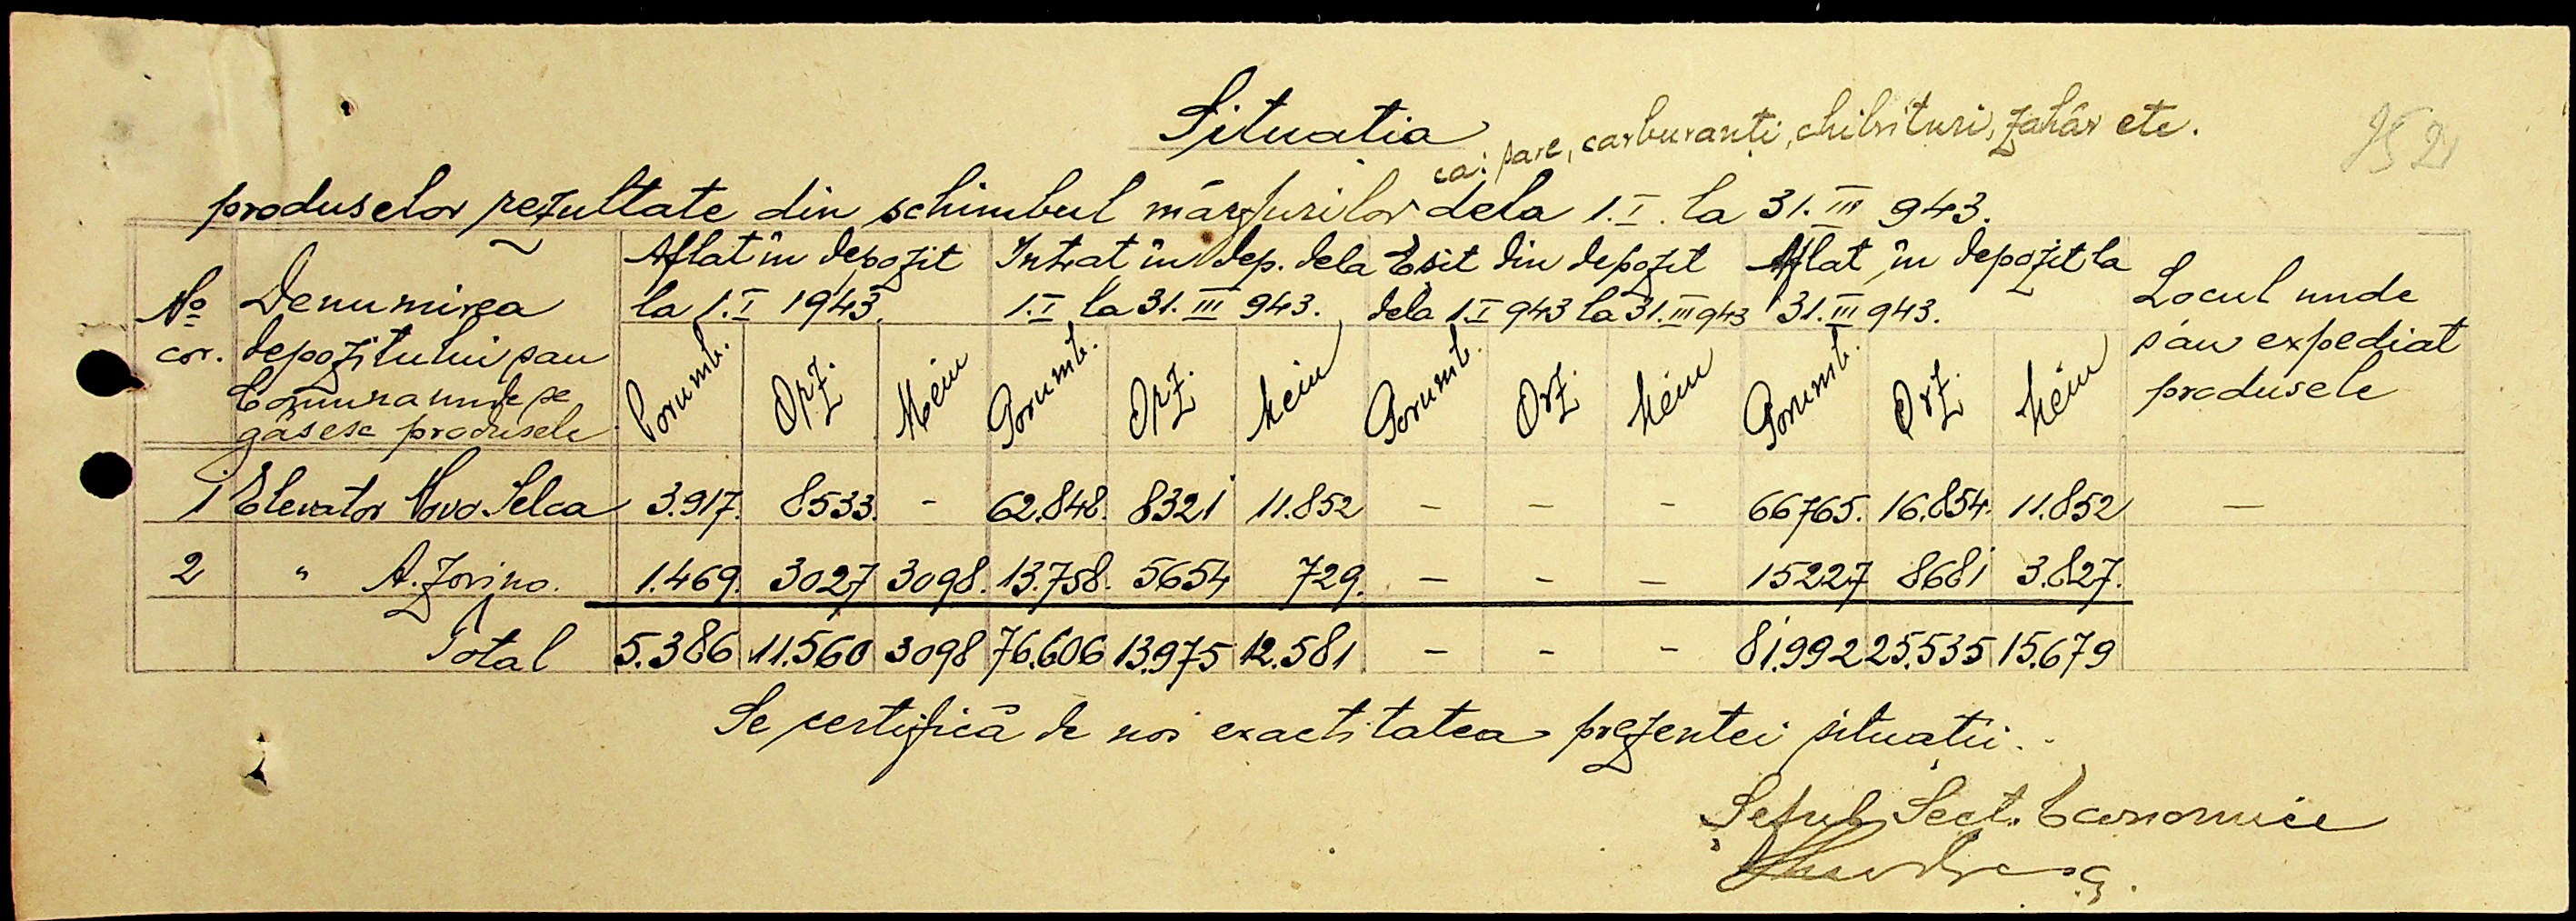 Situatia
ca: sare, carburanți, chibrituri, zahăr etc.
produselor rezultate din schimbul mărfurilor dela 1.I. la 31.III 943.
No cor. | Denumirea depozitului sau Comuna unde se găsesc produsele | Aflat în depozit la 1.I 1943. | Intrat în dep. dela 1.I la 31.III 943. | Esit din depozit dela 1.I 943 la 31.III 943 | Aflat în depozit la 31.III 943. | Locul unde s'au expediat produsele
Porumb. | Orz. | Meiu | Porumb. | Orz. | Meiu | Porumb. | Orz. | Meiu | Porumb. | Orz. | Meiu
1 | Elevator Novo Selca | 3.917. | 8533. | - | 62.848. | 8321 | 11.852 | - | - | - | 66765. | 16.854. | 11.852 | -
2 | " A. Zorino. | 1.469. | 3027 | 3098. | 13.758. | 5654 | 729. | - | - | - | 15227 | 8681 | 3.827.
Total | 5.386 | 11.560 | 3098 | 76.606 | 13.975 | 12.581 | - | - | - | 81.992 | 25.535 | 15.679
Se certifică de noi exactitatea prezentei situatii.
Șeful Sect. Economice